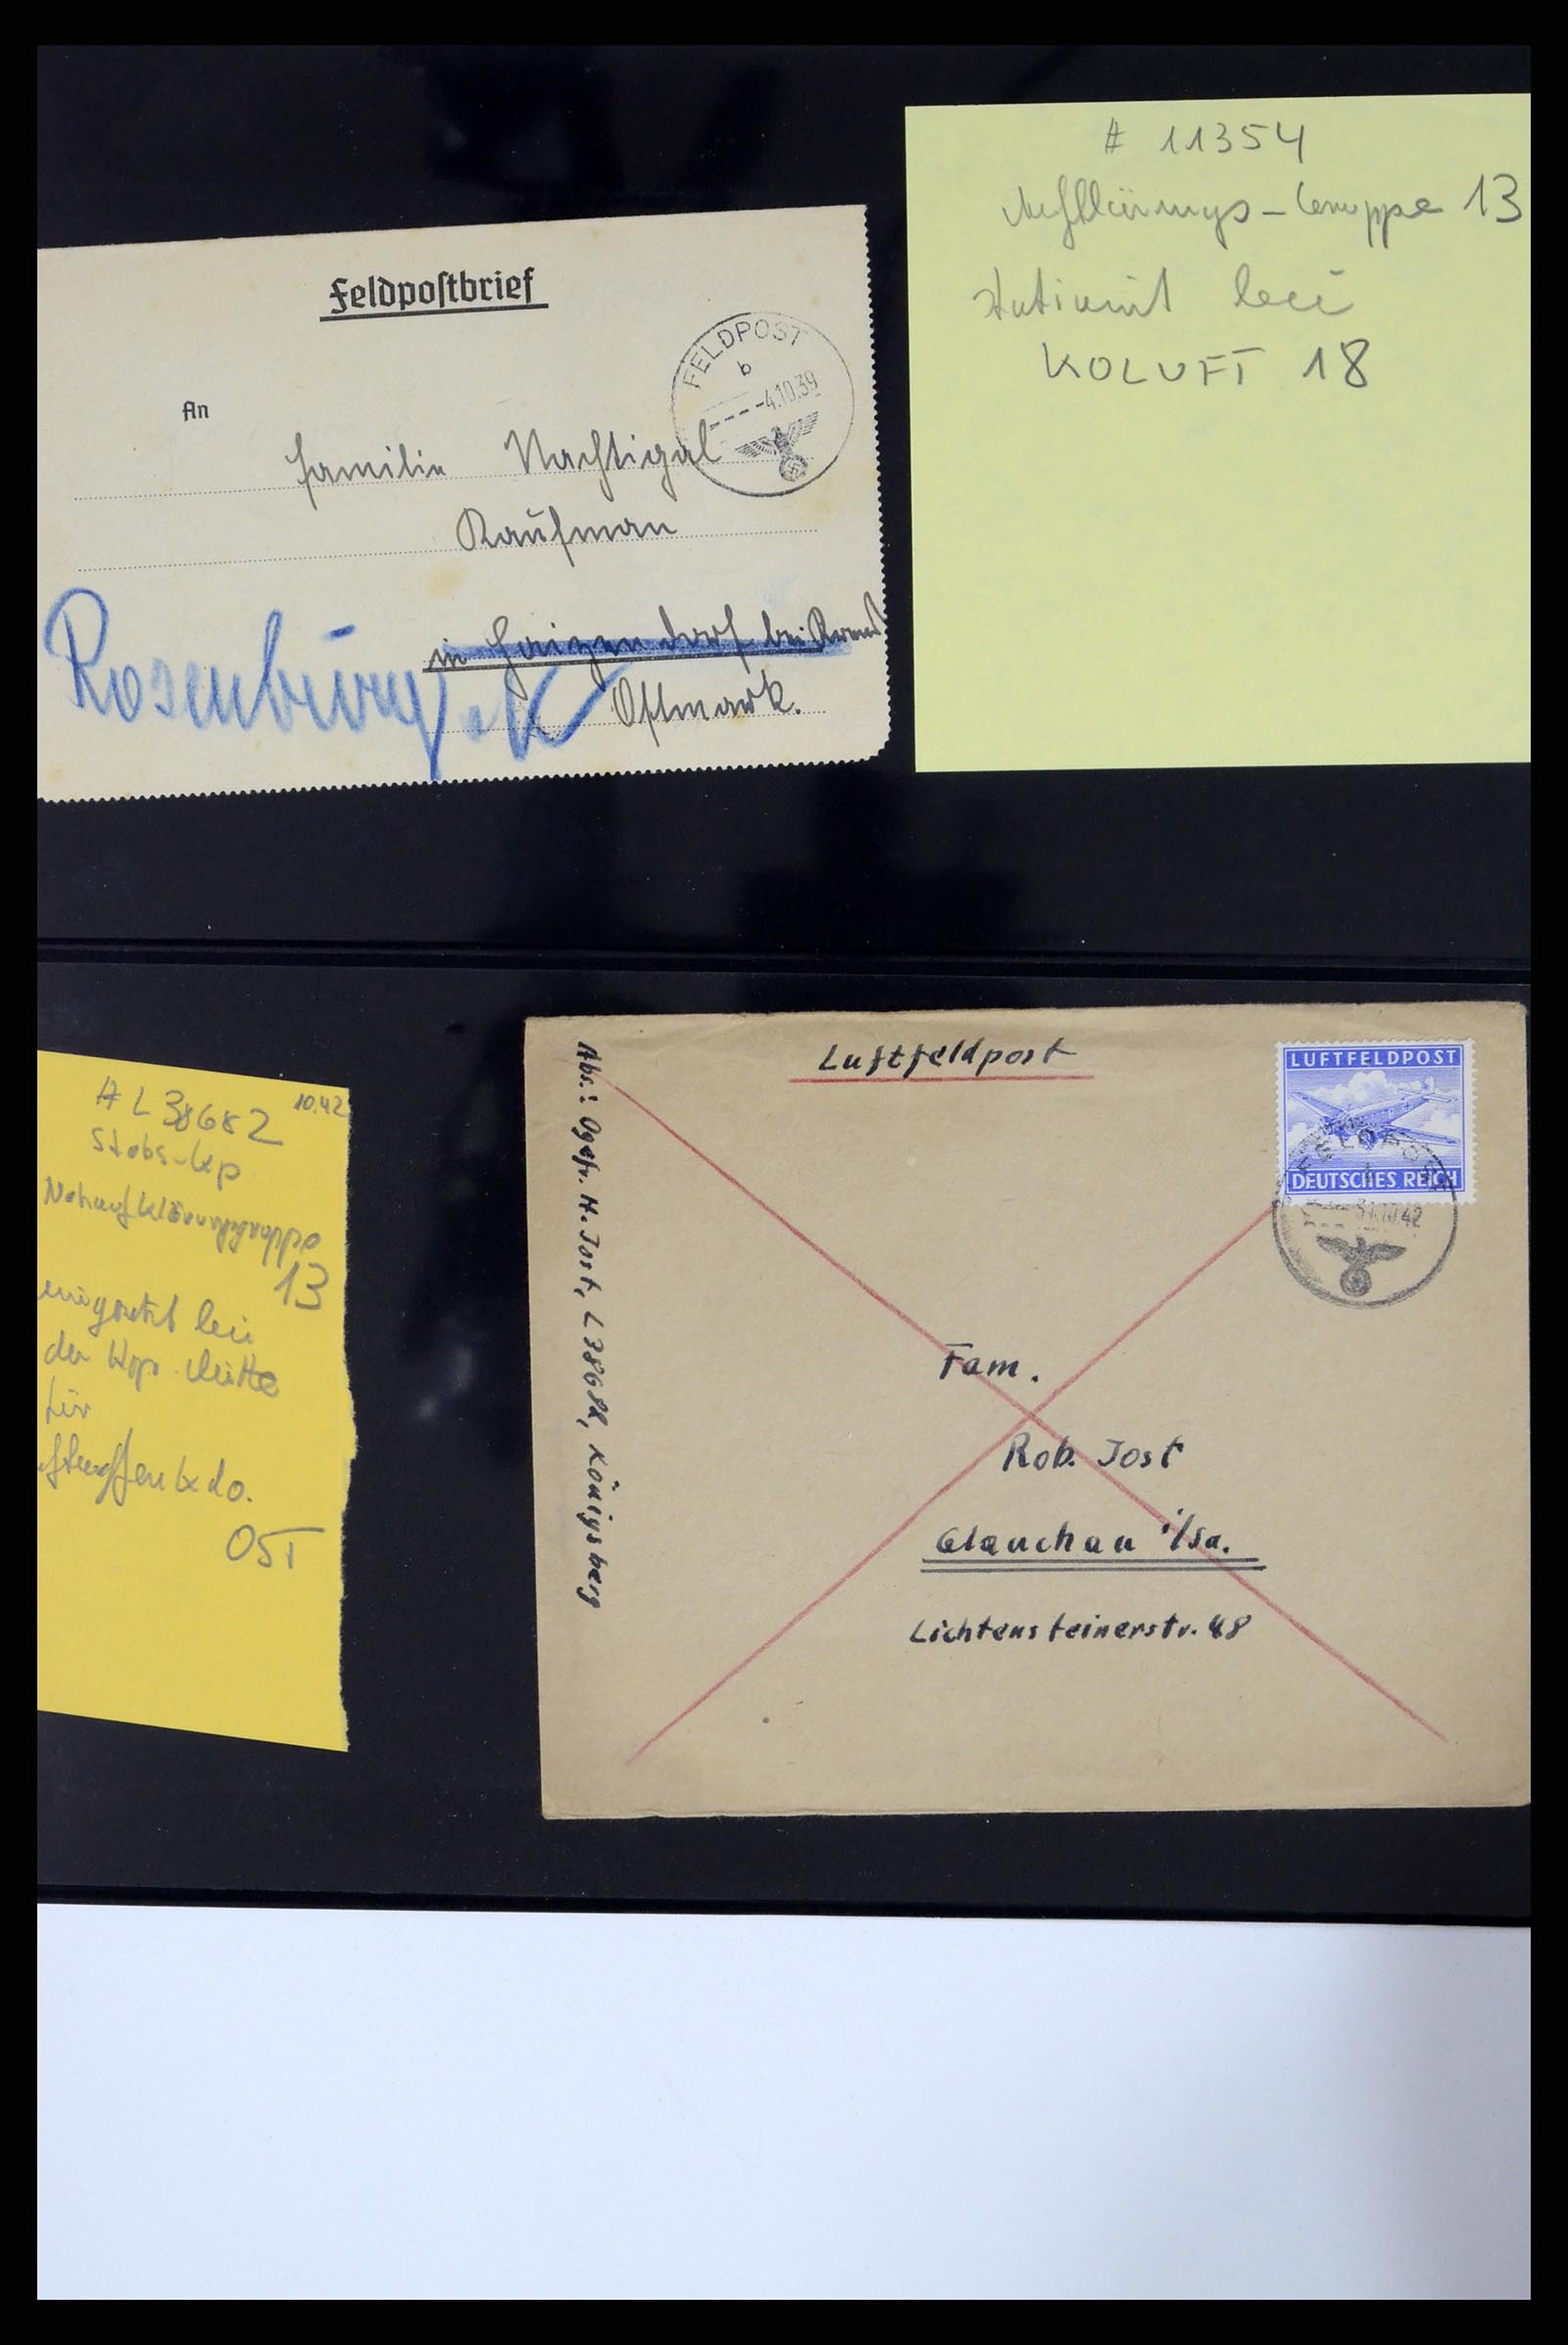 Feldpostbrief
FELDPOST
b
-4.10.39
An
Familie Nachtigal
Kaufman
in Haizendorf bei Krems
Rosenburg a/K
Ostmark.
# 11354
Aufklärungs-Gruppe 13
stationiert bei
KOLUFT 18
# L 38682 10.42
Stabs-Kp
Nahaufklärungsgruppe
13
eingesetzt bei
der Hgr. Mitte
für
Luftwaffenkdo.
OST
Luftfeldpost
LUFTFELDPOST
DEUTSCHES REICH
FELDPOST
31.10.42
Abs.: Ogefr. H. Jost, L 38682, Königsberg
Fam.
Rob. Jost
Glauchau i/Sa.
Lichtensteinerstr. 48